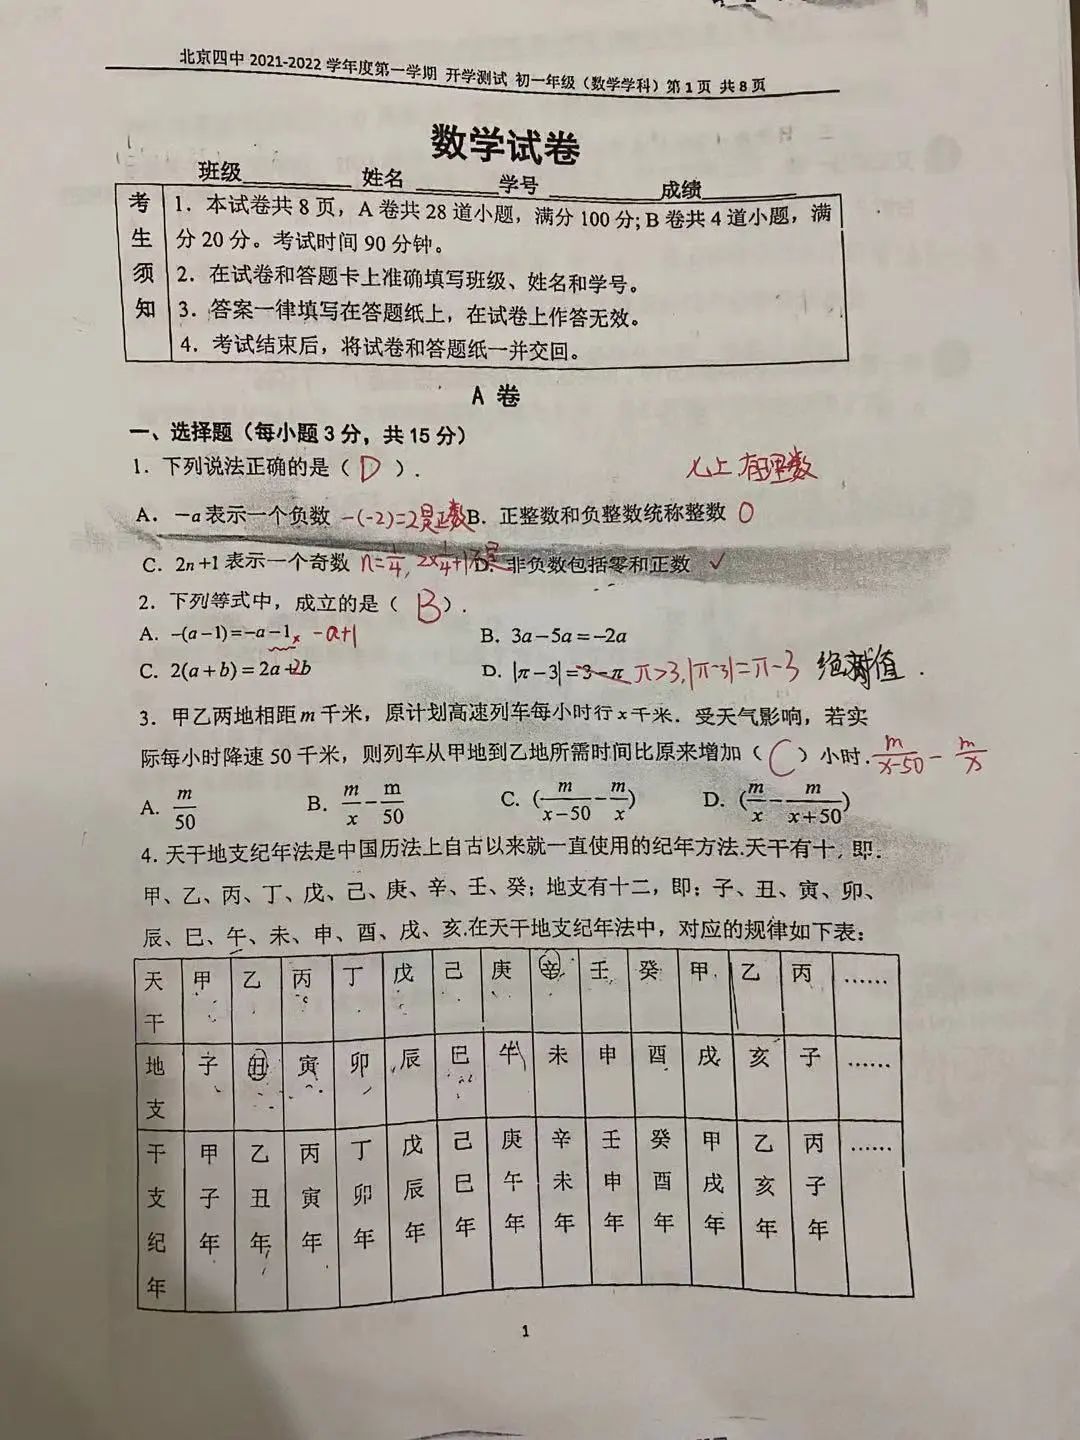 北京四中 2021-2022 学年度第一学期 开学测试 初一年级（数学学科）第 1 页 共 8 页
数学试卷
班级 姓名 学号 成绩
考生须知
1. 本试卷共 8 页，A 卷共 28 道小题，满分 100 分; B 卷共 4 道小题，满
分 20 分。考试时间 90 分钟。
2. 在试卷和答题卡上准确填写班级、姓名和学号。
3. 答案一律填写在答题纸上，在试卷上作答无效。
4. 考试结束后，将试卷和答题纸一并交回。
A 卷
一、选择题（每小题 3 分，共 15 分）
1. 下列说法正确的是（ D ）. 七上 有理数
A. －a 表示一个负数 -(-2)=2是正数 B. 正整数和负整数统称整数 0
C. 2n+1 表示一个奇数 n=1/4, 2×1/4+1 D. 非负数包括零和正数 ✓
2. 下列等式中，成立的是（ B ）.
A. -(a-1)=-a-1 × -a+1 B. 3a-5a=-2a
C. 2(a+b)=2a+b 2b D. |π-3|=3-π π>3, |π-3|=π-3 绝对值
3. 甲乙两地相距 m 千米，原计划高速列车每小时行 x 千米．受天气影响，若实
际每小时降速 50 千米，则列车从甲地到乙地所需时间比原来增加（ C ）小时. m/(x-50) - m/x
A. m/50 B. m/x - m/50 C. (m/(x-50) - m/x) D. (m/x - m/(x+50))
4. 天干地支纪年法是中国历法上自古以来就一直使用的纪年方法.天干有十，即:
甲、乙、丙、丁、戊、己、庚、辛、壬、癸；地支有十二，即：子、丑、寅、卯、
辰、巳、午、未、申、酉、戌、亥.在天干地支纪年法中，对应的规律如下表：
天干 甲 乙 丙 丁 戊 己 庚 辛 壬 癸 甲 乙 丙 ……
地支 子 丑 寅 卯 辰 巳 午 未 申 酉 戌 亥 子 ……
干支纪年 甲子年 乙丑年 丙寅年 丁卯年 戊辰年 己巳年 庚午年 辛未年 壬申年 癸酉年 甲戌年 乙亥年 丙子年 ……
1